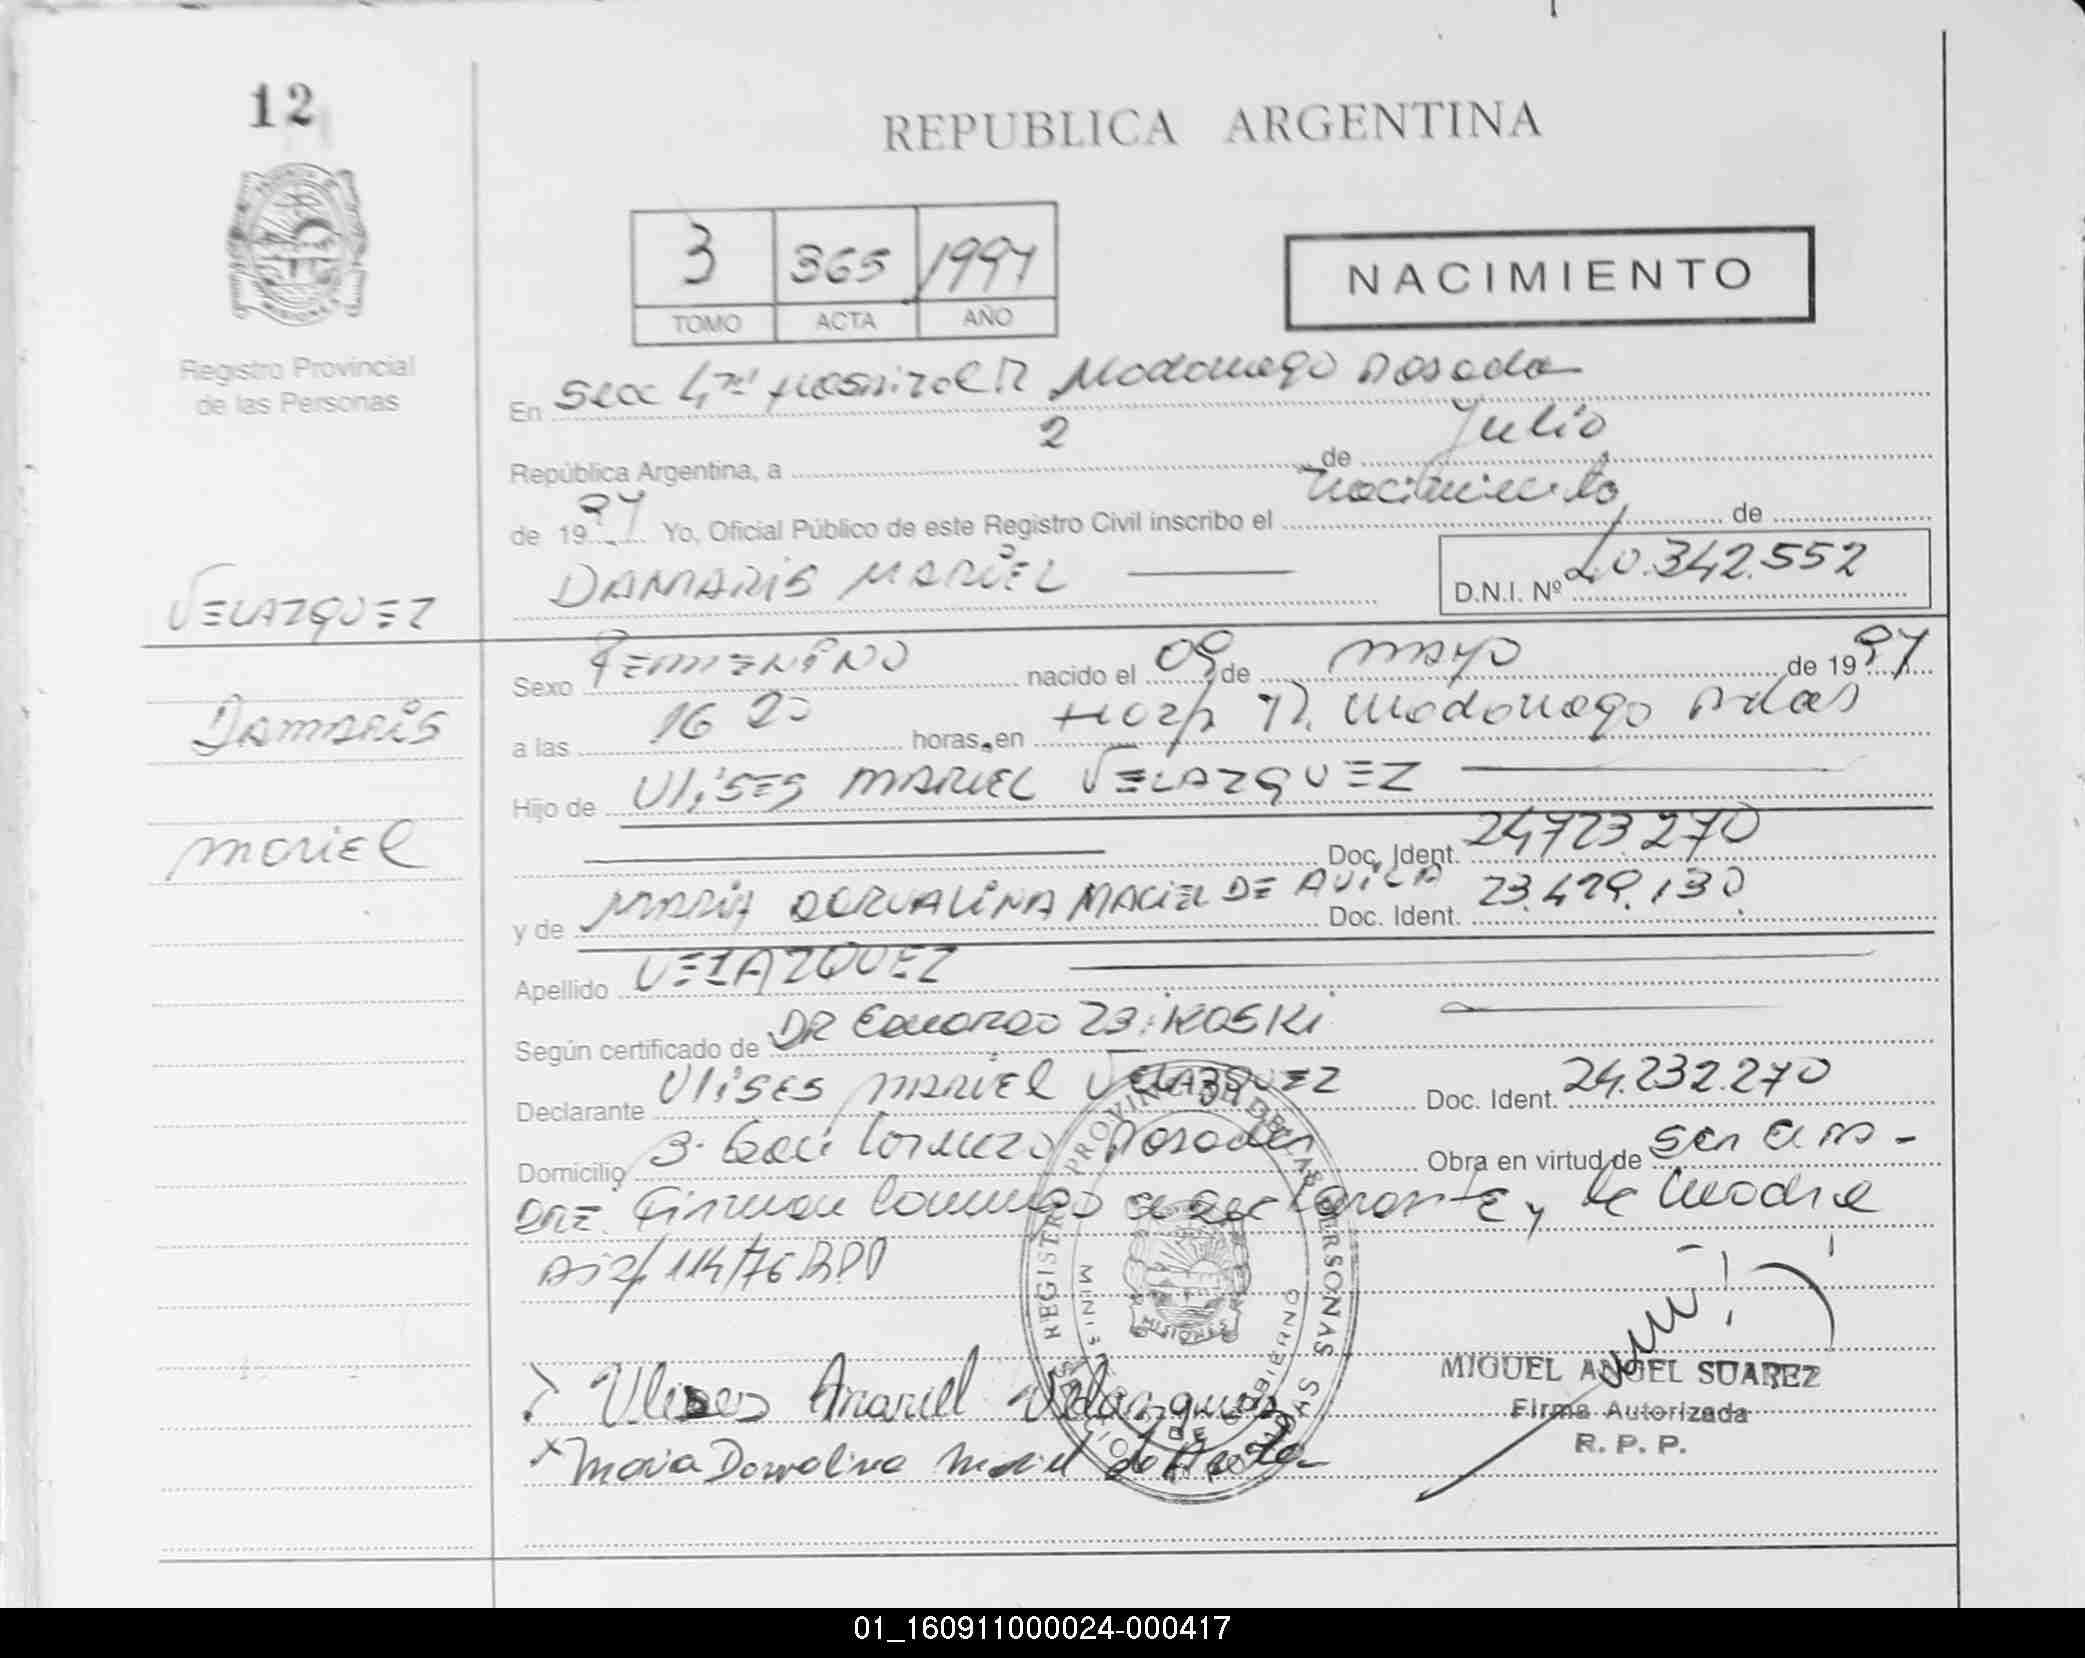 12
REPUBLICA ARGENTINA
3 365 1997
TOMO ACTA AÑO
NACIMIENTO
Registro Provincial
de las Personas
En Secc Hospital R Madariaga Posadas
República Argentina, a 2 de Julio
de 1997 Yo, Oficial Público de este Registro Civil inscribo el nacimiento de
DAMARIS MARIEL D.N.I. Nº 40.342.552
VELAZQUEZ
Damaris
Mariel
Sexo FEMENINO nacido el 09 de mayo de 1997
a las 16 20 horas, en Hosp R. Madariaga Pdas
Hijo de ULISES MARIEL VELAZQUEZ
Doc. Ident. 24723270
y de MARIA DORVALINA MACIEL DE AVILA Doc. Ident. 23.429.130
Apellido VELAZQUEZ
Según certificado de DR Eduardo
Declarante ULISES MARIEL VELAZQUEZ Doc. Ident. 24.232.270
Domicilio B. San Lorenzo Posadas Obra en virtud de ser el pa-
dre. Firman conmigo el declarante y la madre
114/76 RPP
PROVINCIAL DE LAS PERSONAS
REGISTRO
MISIONES
DE GOBIERNO
Ulises Mariel Velazquez
x Maria Dorvalina Maciel de Avila
MIGUEL ANGEL SUAREZ
Firma Autorizada
R. P. P.
01_160911000024-000417